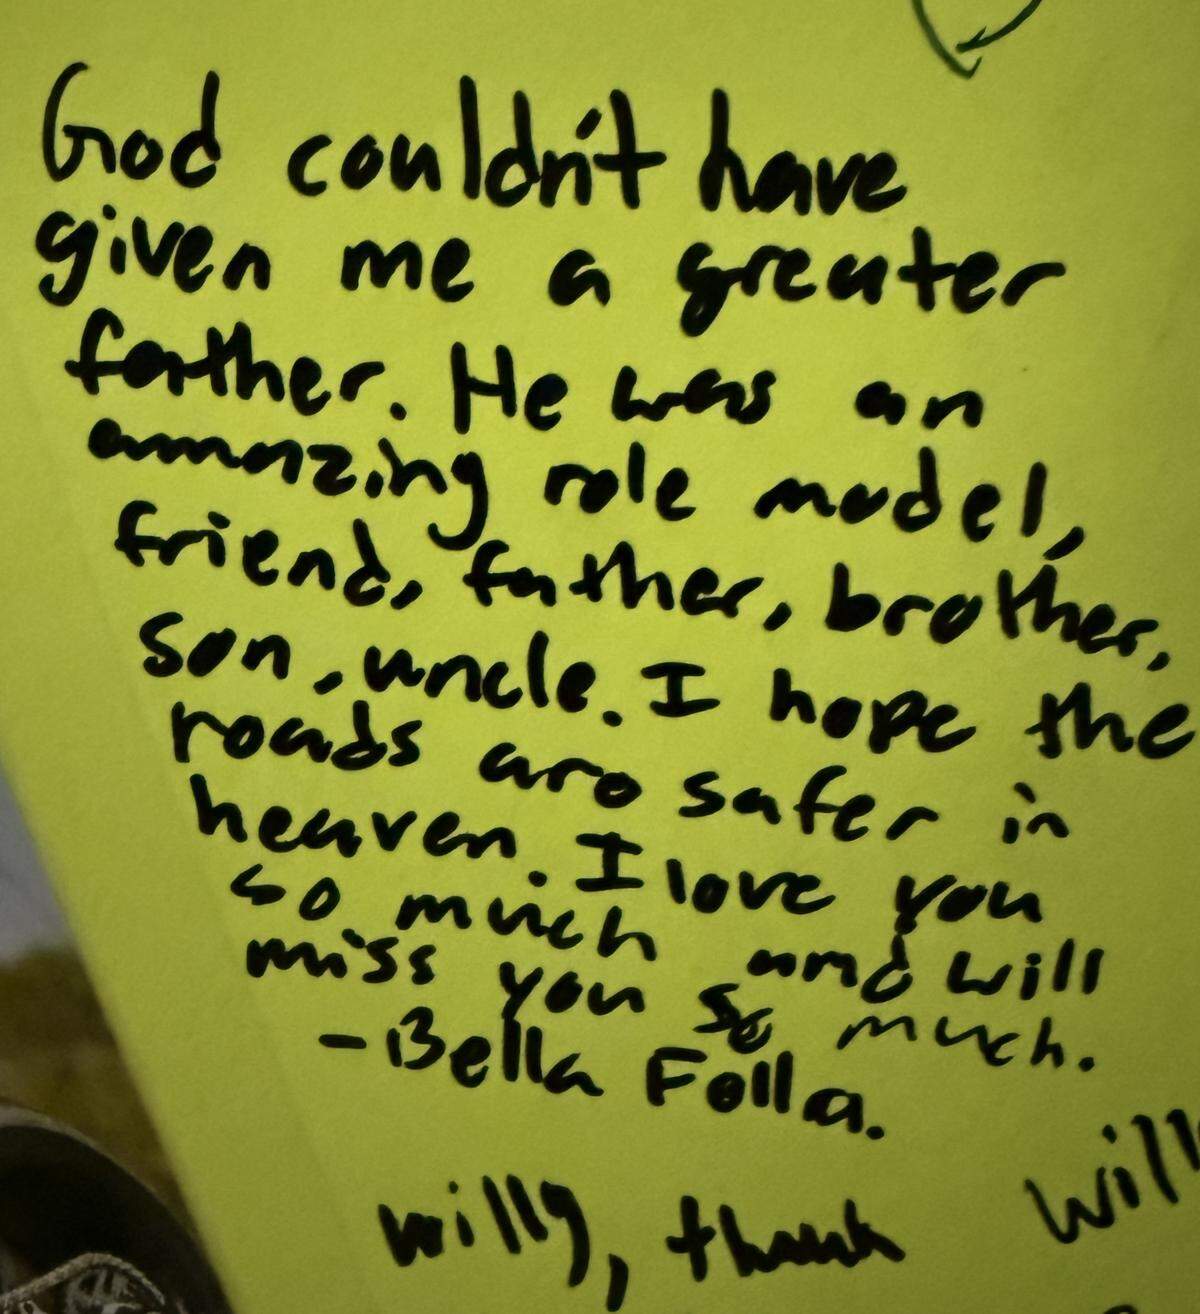 God couldn't have
given me a greater
father. He was an
amazing role model,
friend, father, brother,
son, uncle. I hope the
roads are safer in
heaven. I love you
so much and will
miss you so much.
-Bella Folla.
willy, thank